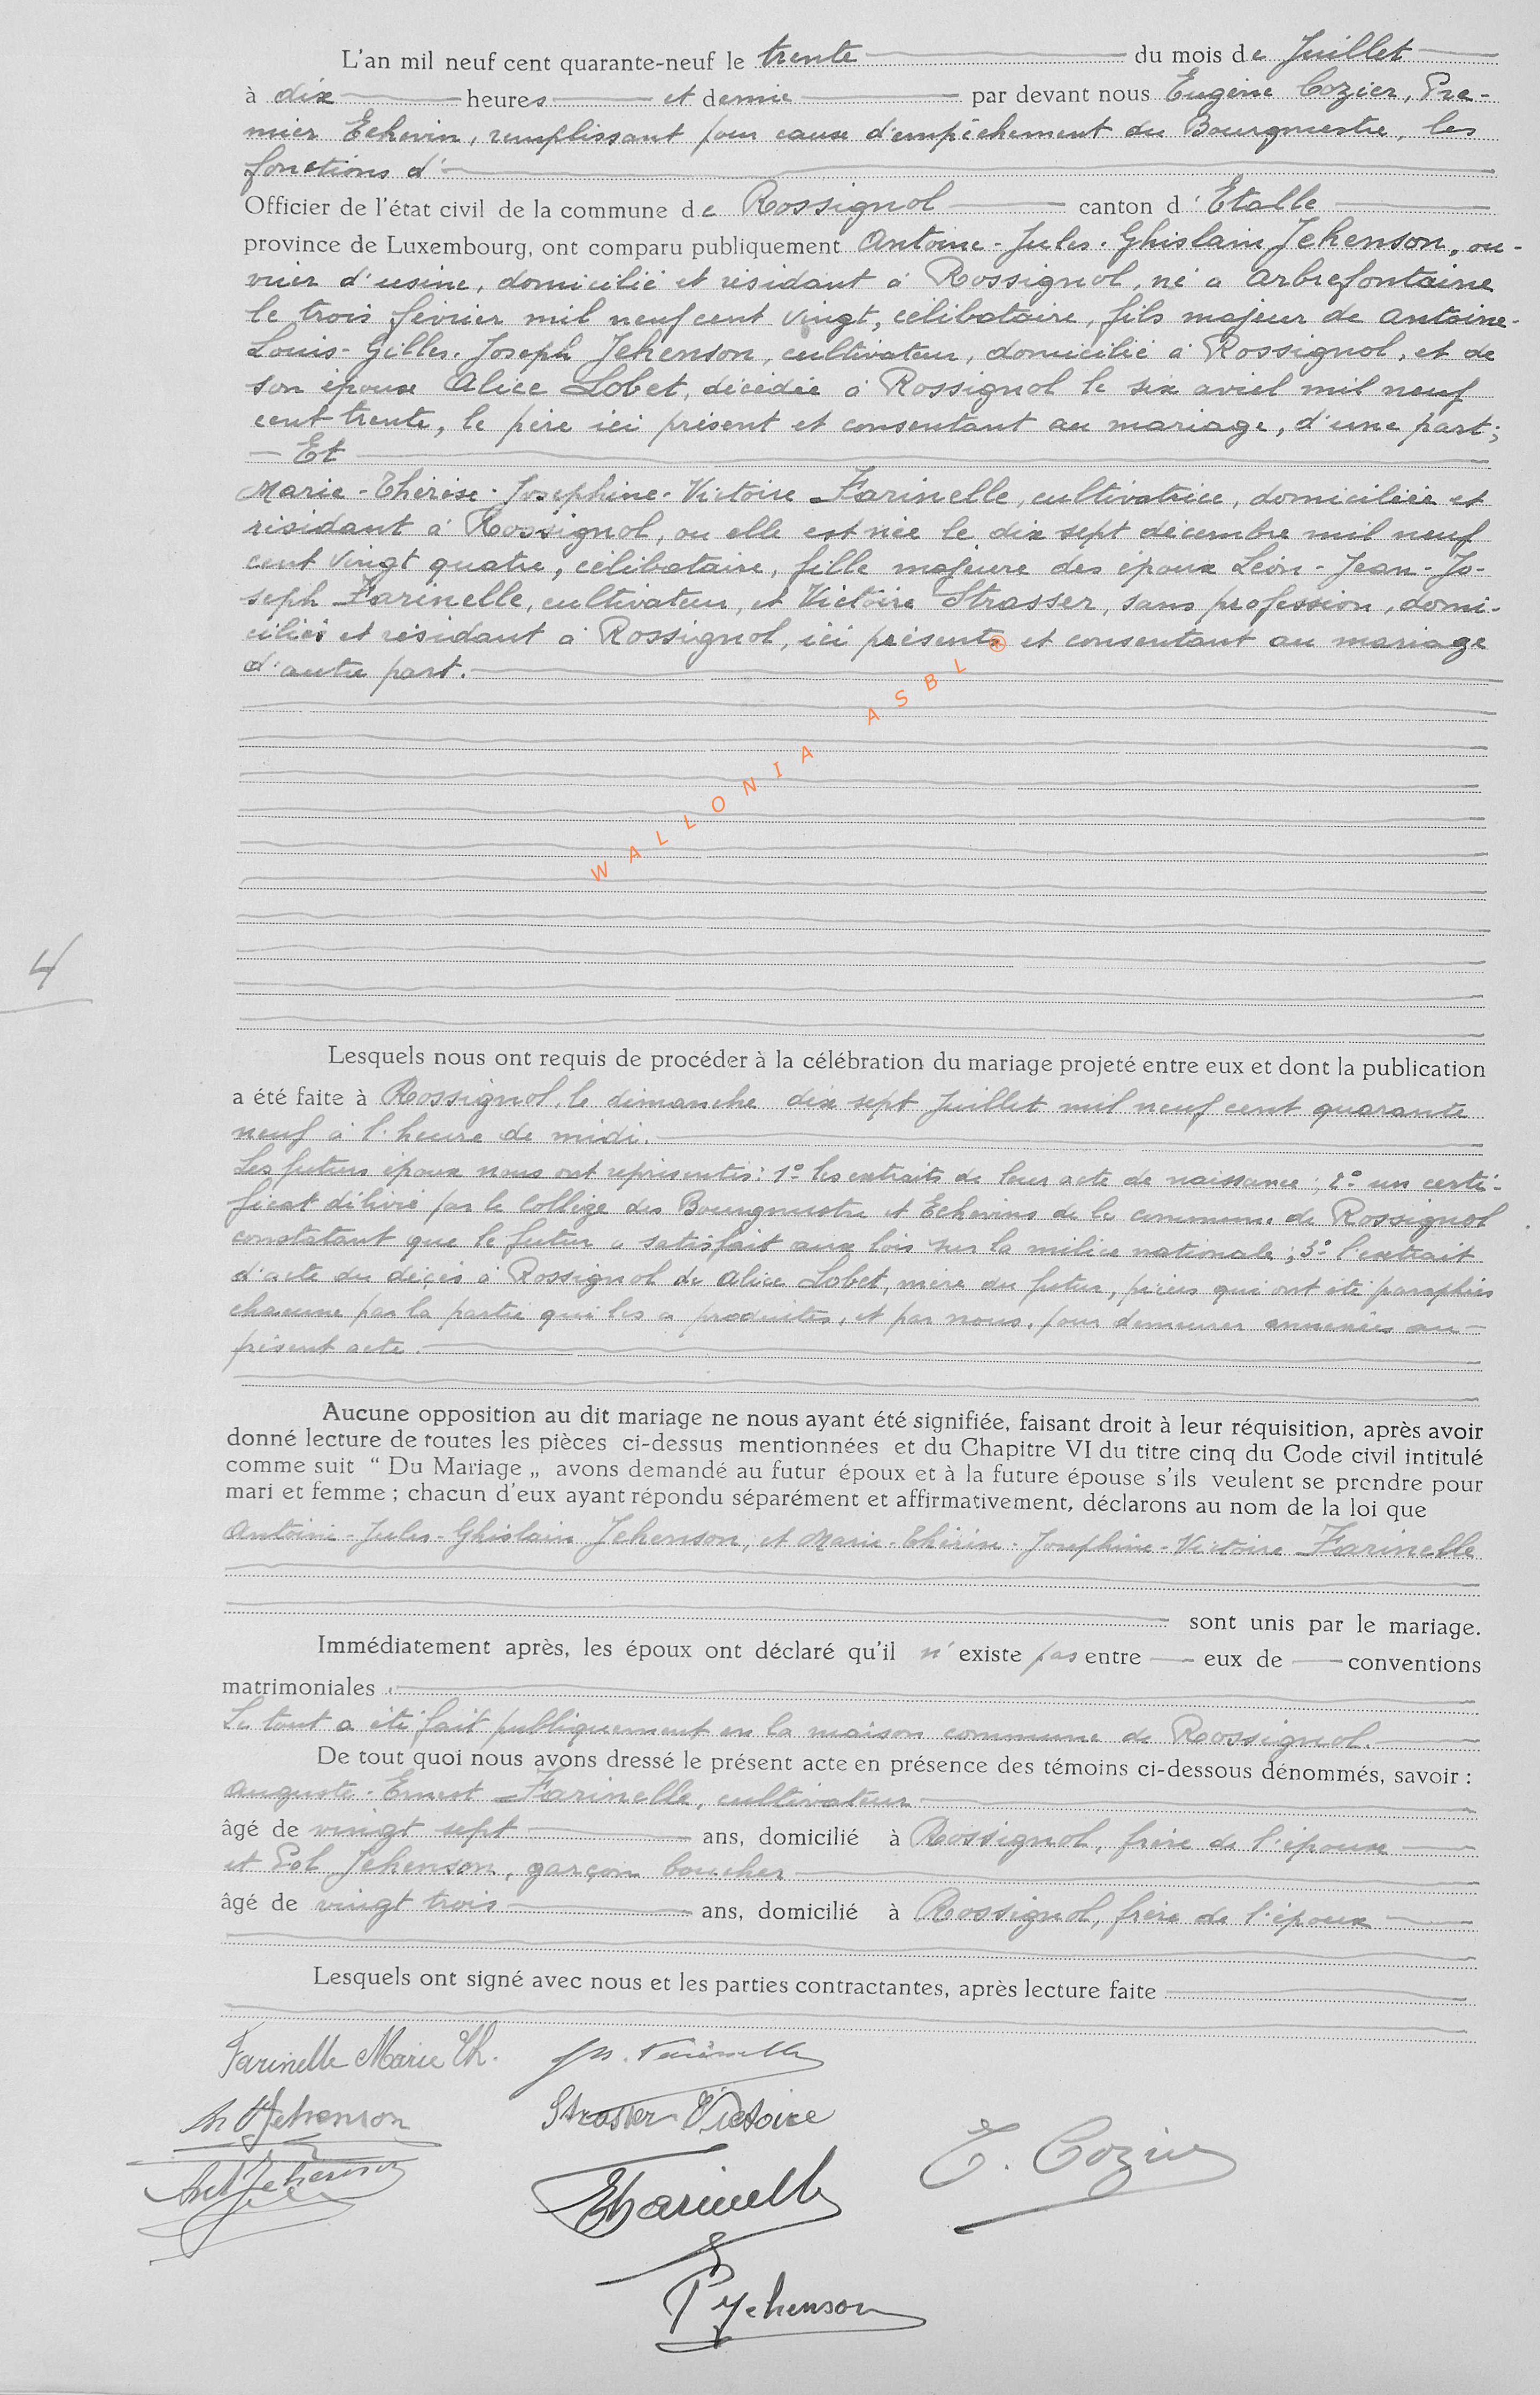 L'an mil neuf cent quarante-neuf le trente du mois de Juillet
à dix heures et demie par devant nous Eugène Cozier, Pre-
mier Echevin, remplissant pour cause d'empêchement du Bourgmestre, les
fonctions d'
Officier de l'état civil de la commune de Rossignol canton d'Etalle
province de Luxembourg, ont comparu publiquement Antoine-Jules-Ghislain Jehenson, ou-
vrier d'usine, domicilié et résidant à Rossignol, né à Arbrefontaine
le trois février mil neuf cent vingt, célibataire, fils majeur de Antoine-
Louis-Gilles-Joseph Jehenson, cultivateur, domicilié à Rossignol, et de
son épouse Alice Lobet, décédée à Rossignol le six avril mil neuf
cent trente, le père ici présent et consentant au mariage, d'une part;
Et
Marie-Thérèse-Joséphine-Victoire Farinelle, cultivatrice, domiciliée et
résidant à Rossignol, ou elle est née le dix sept décembre mil neuf
cent vingt quatre, célibataire, fille majeure des époux Léon-Jean-Jo-
seph Farinelle, cultivateur, et Victoire Strasser, sans profession, domi-
ciliés et résidant à Rossignol, ici présents et consentant au mariage
d'autre part.
WALLONIA ASBL ®
4
Lesquels nous ont requis de procéder à la célébration du mariage projeté entre eux et dont la publication
a été faite à Rossignol, le dimanche dix sept Juillet mil neuf cent quarante
neuf à l'heure de midi.
Les futurs époux nous ont représentés: 1° les extraits de leur acte de naissance; 2° un certi-
ficat délivré par le Collège des Bourgmestre et Echevins de la commune de Rossignol
constatant que le futur a satisfait aux lois sur la milice nationale; 3° l'extrait
d'acte du décès à Rossignol de Alice Lobet, mère du futur, pièces qui ont été paraphées
chacune par la partie qui les a produites, et par nous, pour demeurer annexées au
présent acte.
Aucune opposition au dit mariage ne nous ayant été signifiée, faisant droit à leur réquisition, après avoir
donné lecture de toutes les pièces ci-dessus mentionnées et du Chapitre VI du titre cinq du Code civil intitulé
comme suit “ Du Mariage „ avons demandé au futur époux et à la future épouse s'ils veulent se prendre pour
mari et femme ; chacun d'eux ayant répondu séparément et affirmativement, déclarons au nom de la loi que
Antoine-Jules-Ghislain Jehenson, et Marie-Thérèse-Joséphine-Victoire Farinelle
sont unis par le mariage.
Immédiatement après, les époux ont déclaré qu'il n'existe pas entre eux de conventions
matrimoniales.
Le tout a été fait publiquement en la maison commune de Rossignol.
De tout quoi nous avons dressé le présent acte en présence des témoins ci-dessous dénommés, savoir :
Auguste-Ernest Farinelle, cultivateur
âgé de vingt sept ans, domicilié à Rossignol, frère de l'épouse
et Pol Jehenson, garçon boucher
âgé de vingt trois ans, domicilié à Rossignol, frère de l'époux
Lesquels ont signé avec nous et les parties contractantes, après lecture faite
Farinelle Marie Th. Farinelle
Jehenson Strasser Victoire
E. Cozier
Ant Jehenson Farinelle
P Jehenson